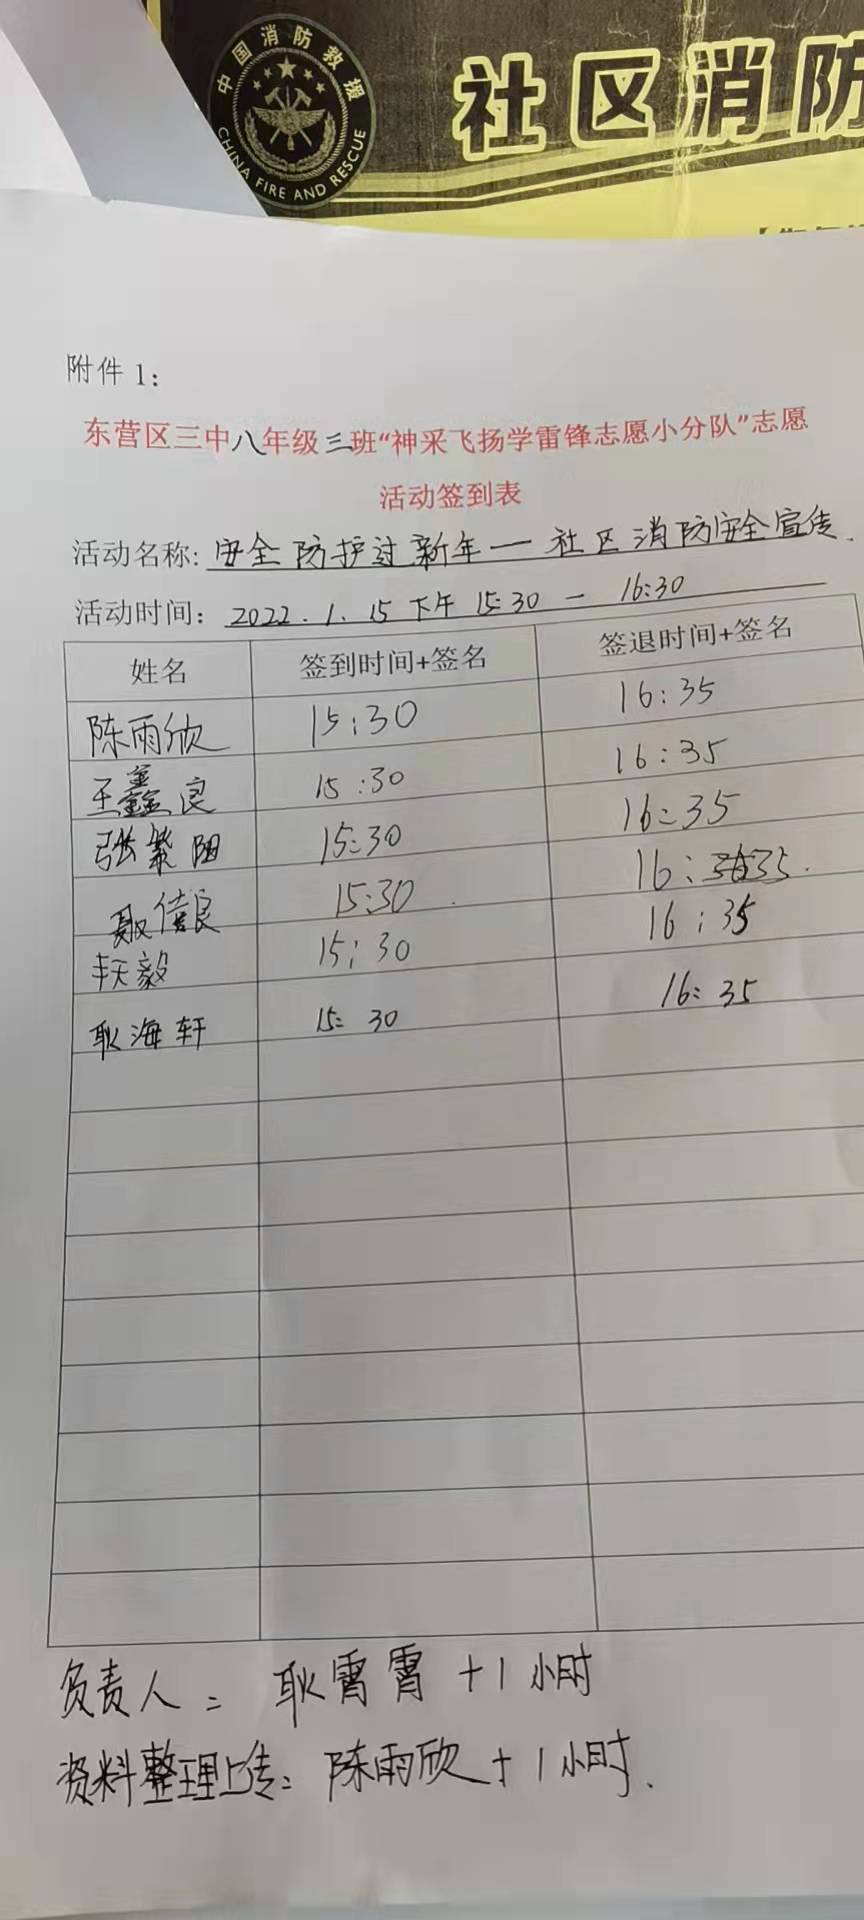 中国消防救援
CHINA FIRE AND RESCUE
社区消防
附件 1：
东营区三中八年级三班“神采飞扬学雷锋志愿小分队”志愿
活动签到表
活动名称: 安全防护过新年一社区消防安全宣传.
活动时间: 2022.1.15 下午 15:30 - 16:30
姓名 签到时间+签名 签退时间+签名
陈雨欣 15:30 16:35
王鑫良 15:30 16:35
张繁阳 15:30 16:35
良 15:30 16:35.
毅 15:30 16:35
耿海轩 15:30 16:35
负责人: 耿霄霄 +1小时
资料整理上传: 陈雨欣 +1小时.